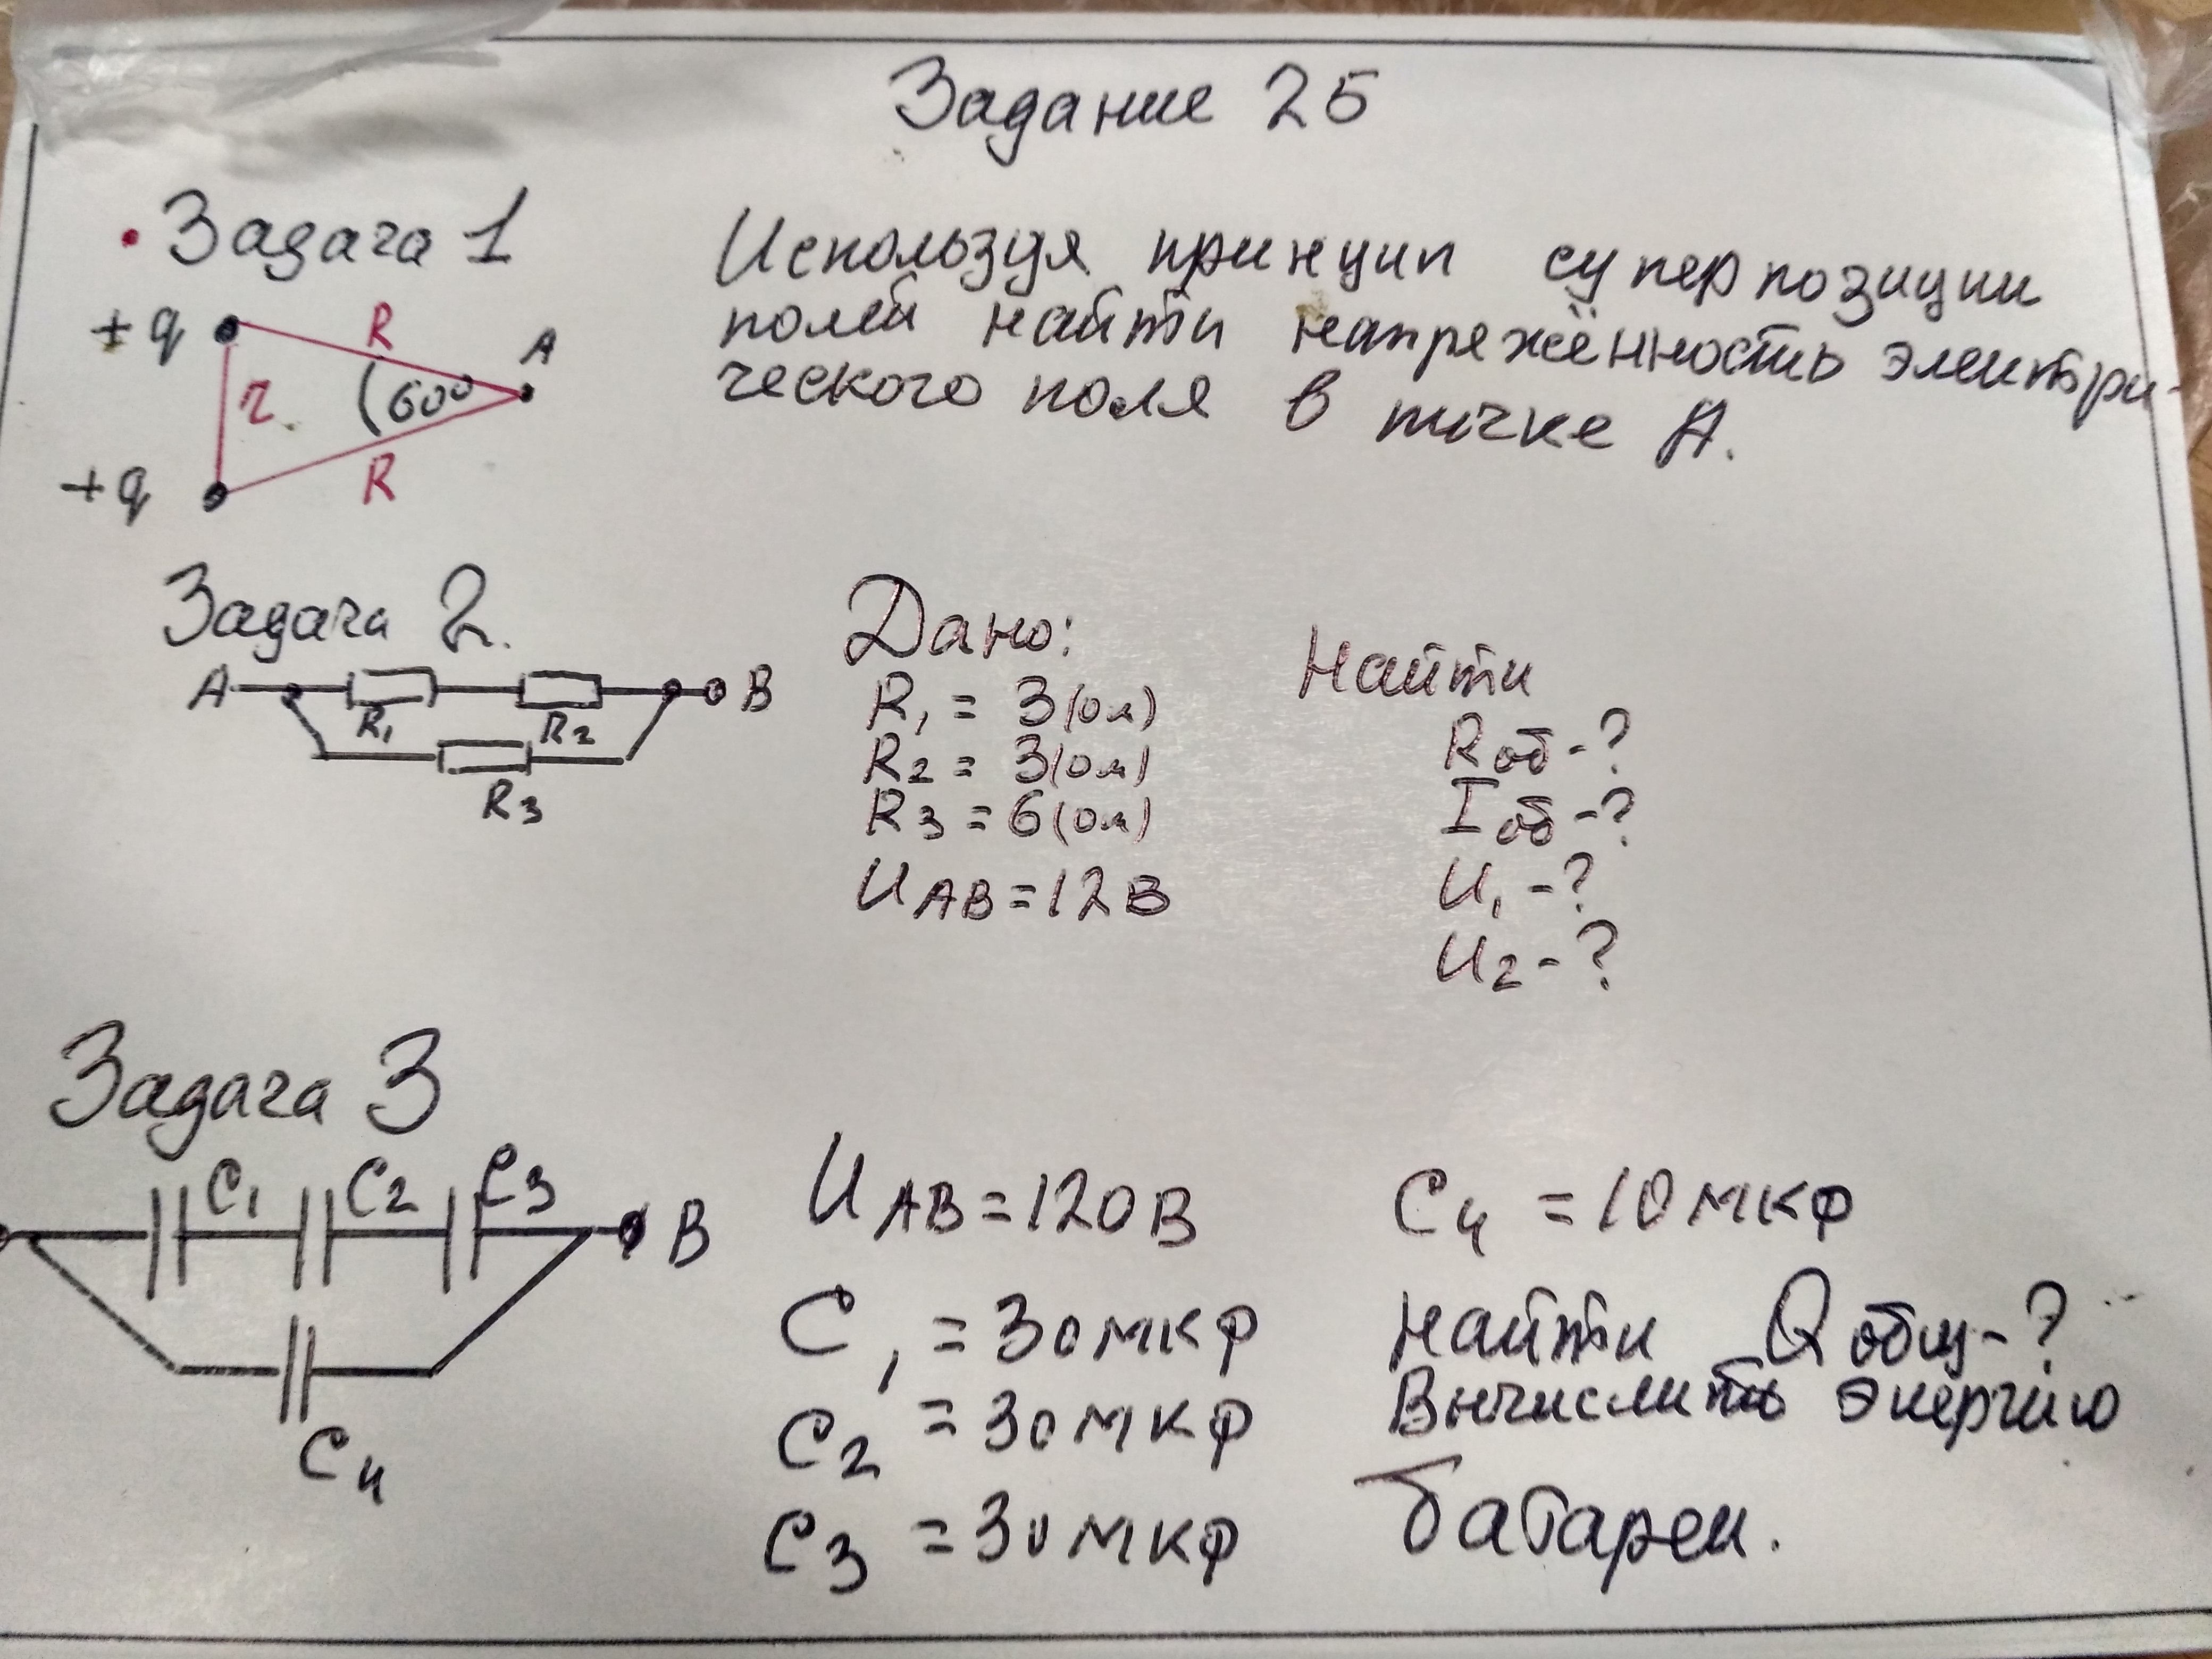 Задание 25
Задача 1
+q
R
A
r
60°
+q
R
Используя принцип суперпозиции
полей найти напряжённость электри-
ческого поля в точке А.
Задача 2.
A
B
R1
R2
R3
Дано:
R1 = 3(ом)
R2 = 3(ом)
R3 = 6(ом)
UAB = 12В
Найти
Rоб - ?
Iоб - ?
U1 - ?
U2 - ?
Задача 3
C1
C2
C3
B
C4
UAB = 120В
C1 = 30мкф
C2 = 30мкф
C3 = 30мкф
C4 = 10мкф
Найти Qобщ - ?
Вычислить энергию
батареи.